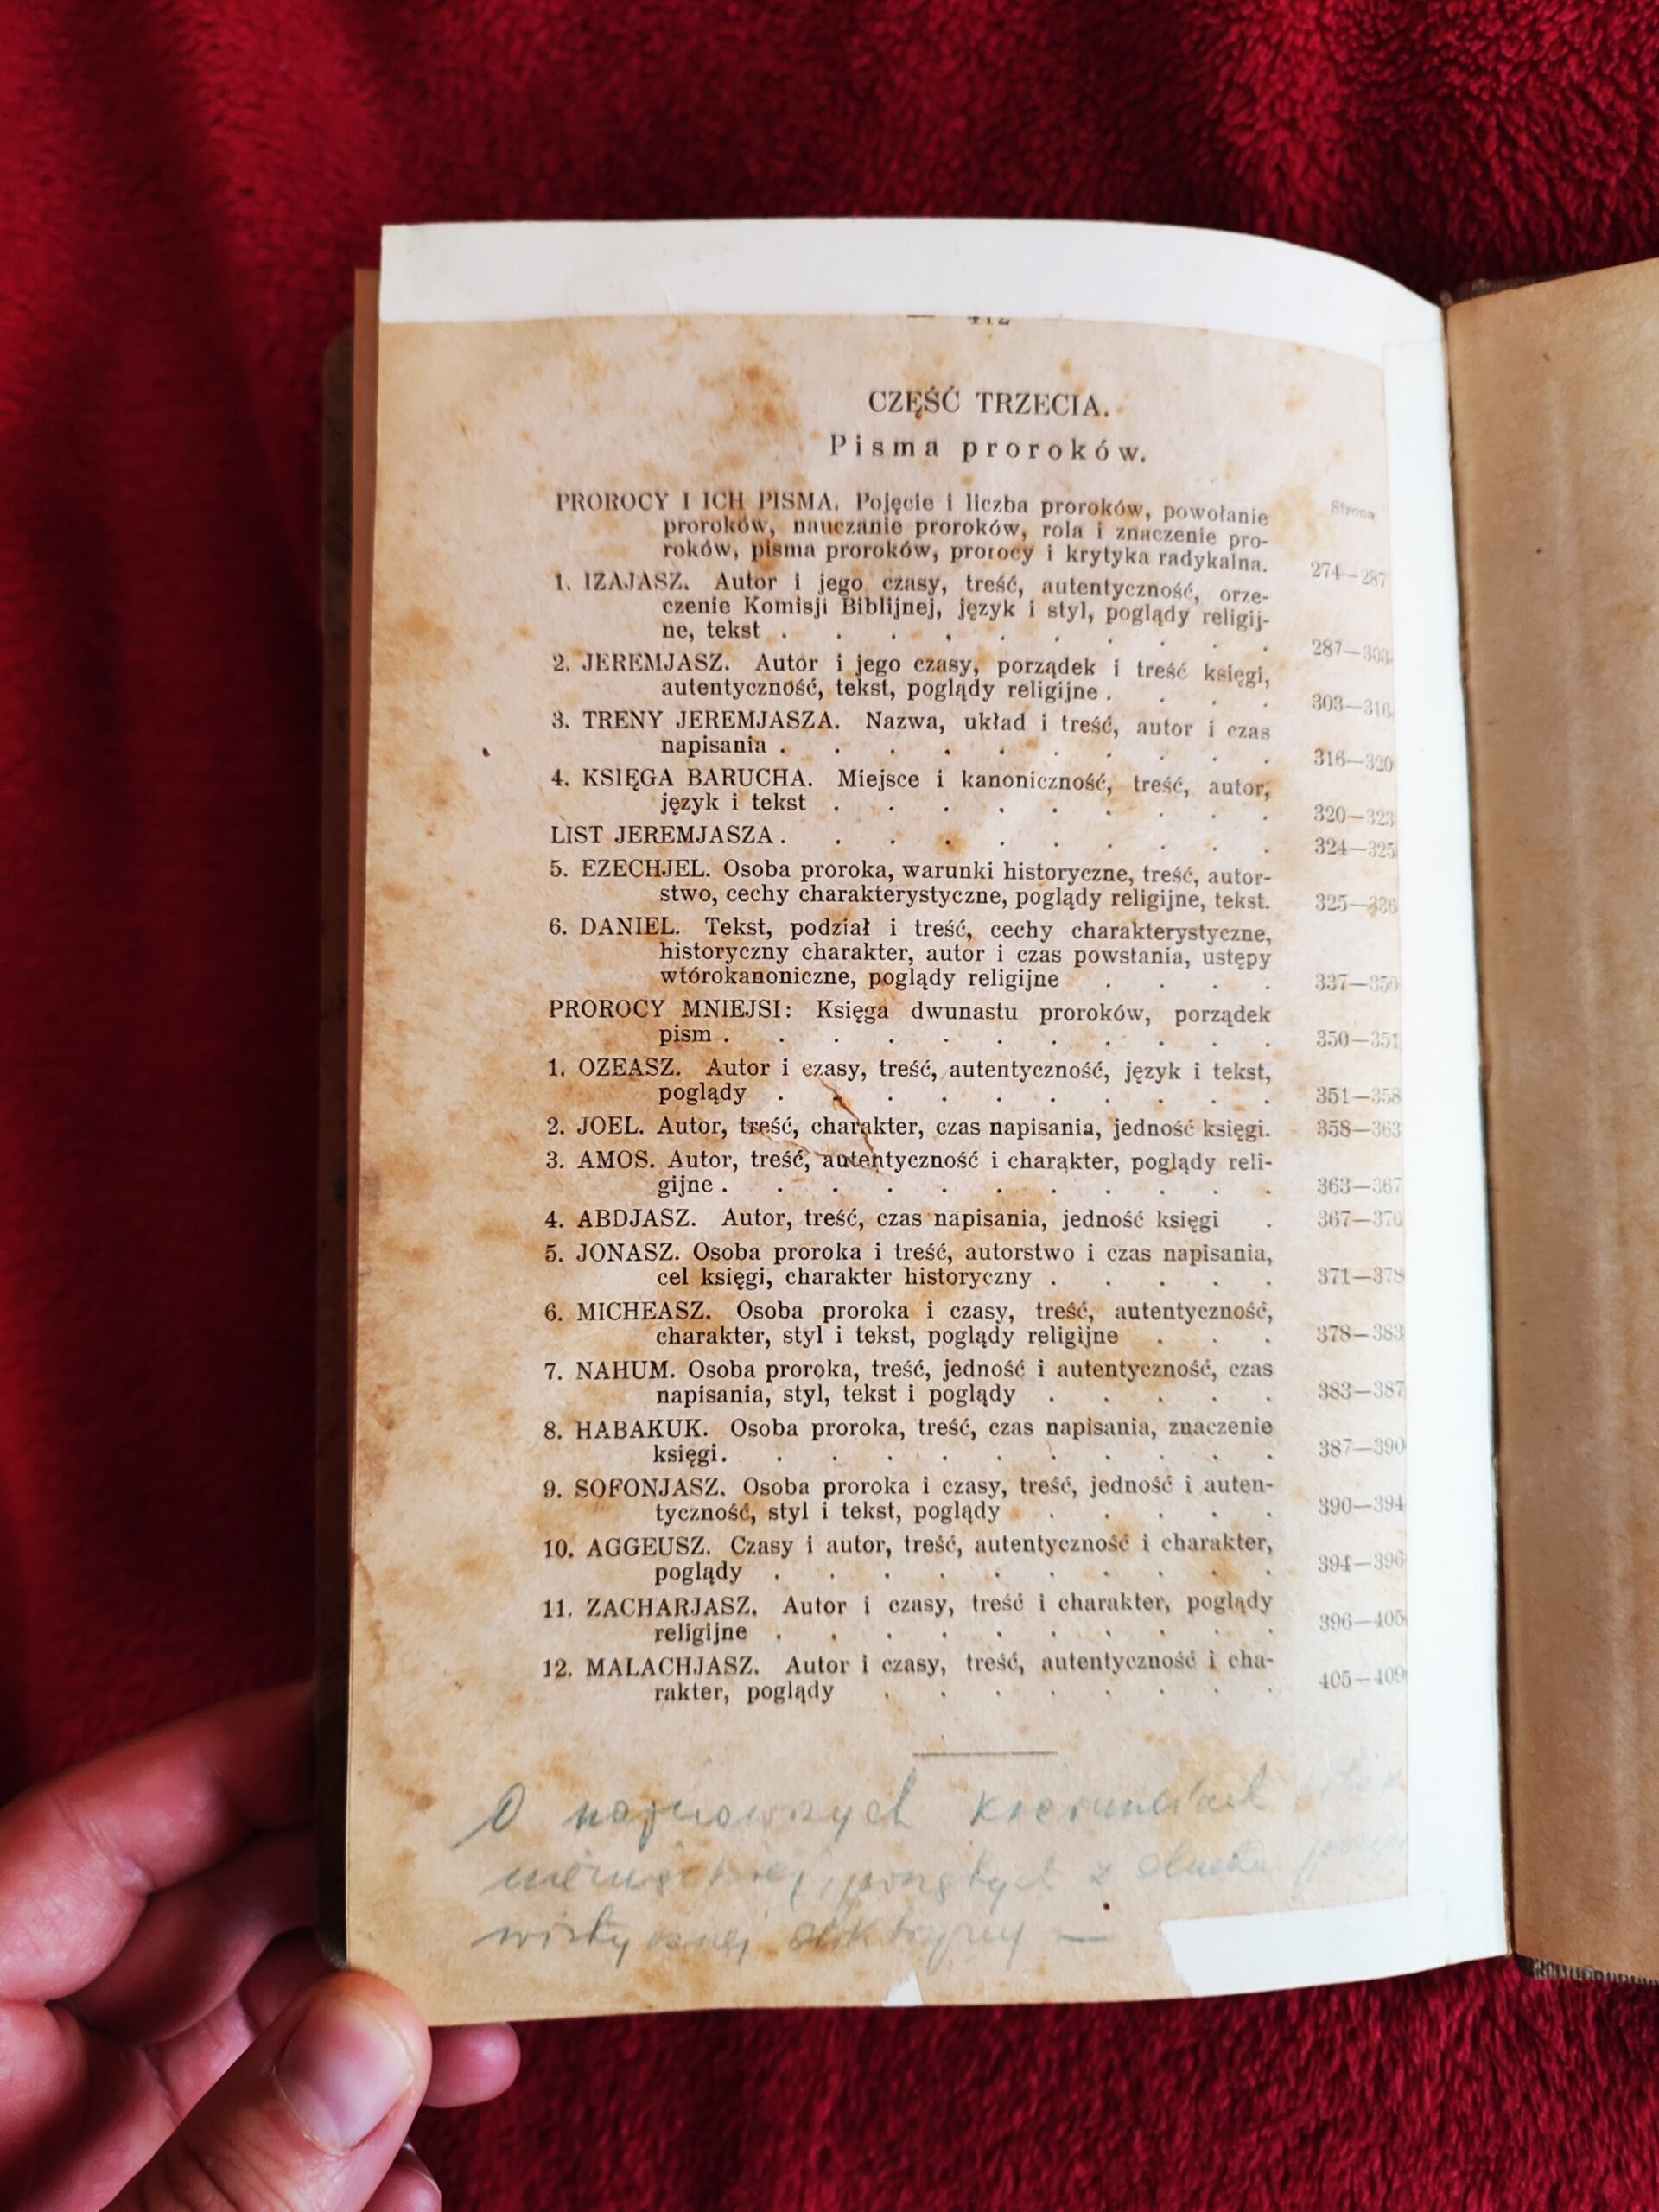 CZĘŚĆ TRZECIA.
Pisma proroków.
Strona
PROROCY I ICH PISMA. Pojęcie i liczba proroków, powołanie
proroków, nauczanie proroków, rola i znaczenie pro-
roków, pisma proroków, prorocy i krytyka radykalna. 274—287
1. IZAJASZ. Autor i jego czasy, treść, autentyczność, orze-
czenie Komisji Biblijnej, język i styl, poglądy religij-
ne, tekst . . . . . . . . . . 287—303
2. JEREMJASZ. Autor i jego czasy, porządek i treść księgi,
autentyczność, tekst, poglądy religijne . . . . 303—316
3. TRENY JEREMJASZA. Nazwa, układ i treść, autor i czas
napisania . . . . . . . . . . 316—320
4. KSIĘGA BARUCHA. Miejsce i kanoniczność, treść, autor,
język i tekst . . . . . . . . . 320—323
LIST JEREMJASZA . . . . . . . . . . 324—325
5. EZECHJEL. Osoba proroka, warunki historyczne, treść, autor-
stwo, cechy charakterystyczne, poglądy religijne, tekst. 325—336
6. DANIEL. Tekst, podział i treść, cechy charakterystyczne,
historyczny charakter, autor i czas powstania, ustępy
wtórokanoniczne, poglądy religijne . . . . 337—350
PROROCY MNIEJSI: Księga dwunastu proroków, porządek
pism . . . . . . . . . . . 350—351
1. OZEASZ. Autor i czasy, treść, autentyczność, język i tekst,
poglądy . . . . . . . . . . 351—358
2. JOEL. Autor, treść, charakter, czas napisania, jedność księgi. 358—363
3. AMOS. Autor, treść, autentyczność i charakter, poglądy reli-
gijne . . . . . . . . . . . 363—367
4. ABDJASZ. Autor, treść, czas napisania, jedność księgi . 367—370
5. JONASZ. Osoba proroka i treść, autorstwo i czas napisania,
cel księgi, charakter historyczny . . . . . 371—378
6. MICHEASZ. Osoba proroka i czasy, treść, autentyczność,
charakter, styl i tekst, poglądy religijne . . . 378—383
7. NAHUM. Osoba proroka, treść, jedność i autentyczność, czas
napisania, styl, tekst i poglądy . . . . . 383—387
8. HABAKUK. Osoba proroka, treść, czas napisania, znaczenie
księgi. . . . . . . . . . . 387—390
9. SOFONJASZ. Osoba proroka i czasy, treść, jedność i auten-
tyczność, styl i tekst, poglądy . . . . . 390—394
10. AGGEUSZ. Czasy i autor, treść, autentyczność i charakter,
poglądy . . . . . . . . . . 394—396
11. ZACHARJASZ. Autor i czasy, treść i charakter, poglądy
religijne . . . . . . . . . . 396—405
12. MALACHJASZ. Autor i czasy, treść, autentyczność i cha-
rakter, poglądy . . . . . . . . 405—409
O najnowszych kierunkach
z ducha